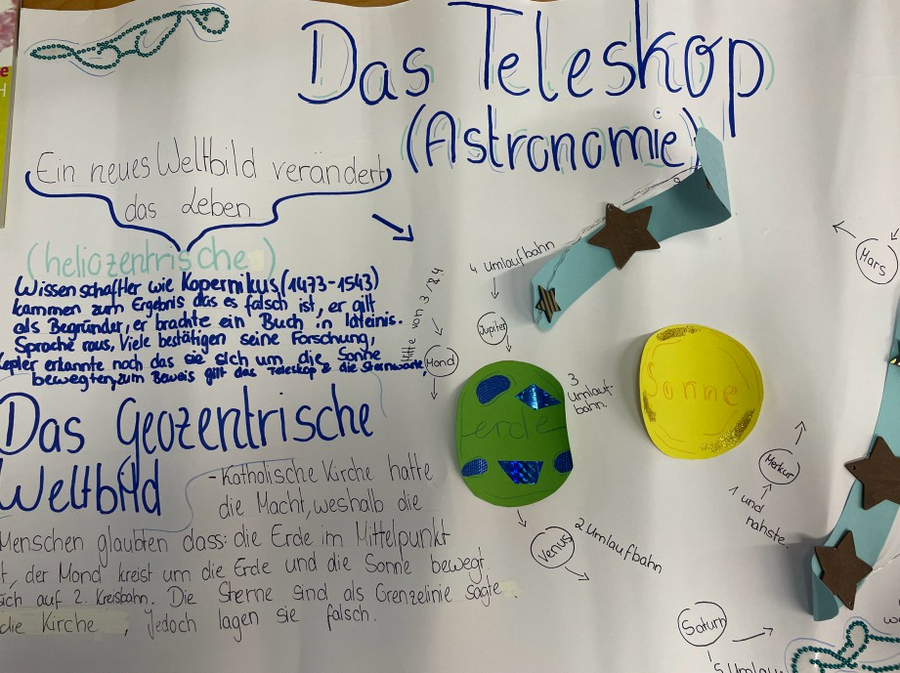 Das Teleskop
(Astronomie)
Ein neues Weltbild verändert
das Leben
(heliozentrische)
Wissenschaftler wie Kopernikus (1473-1543)
kammen zum Ergebnis das es falsch ist, er gilt
als Begründer, er brachte ein Buch in lateinis.
Sprache raus, Viele bestätigen seine Forschung,
Kepler erkannte noch das sie sich um die Sonne
bewegten, zum Beweis gilt das Teleskop & die Sternwarte,
Das Geozentrische
Weltbild
-Katholische Kirche hatte
die Macht, weshalb die
Menschen glaubten dass: die Erde im Mittelpunkt
, der Mond kreist um die Erde und die Sonne bewegt
sich auf 2. Kreisbahn. Die Sterne sind als Grenzelinie sagte
die Kirche, Jedoch lagen sie falsch.
4 Umlaufbahn
Jupiter
Mitte von 3 & 4
Mond
erde
3
Umlauf-
bahn.
Sonne
Mars
Merkur
1 und
nahste.
Venus
2 Umlaufbahn
Saturn